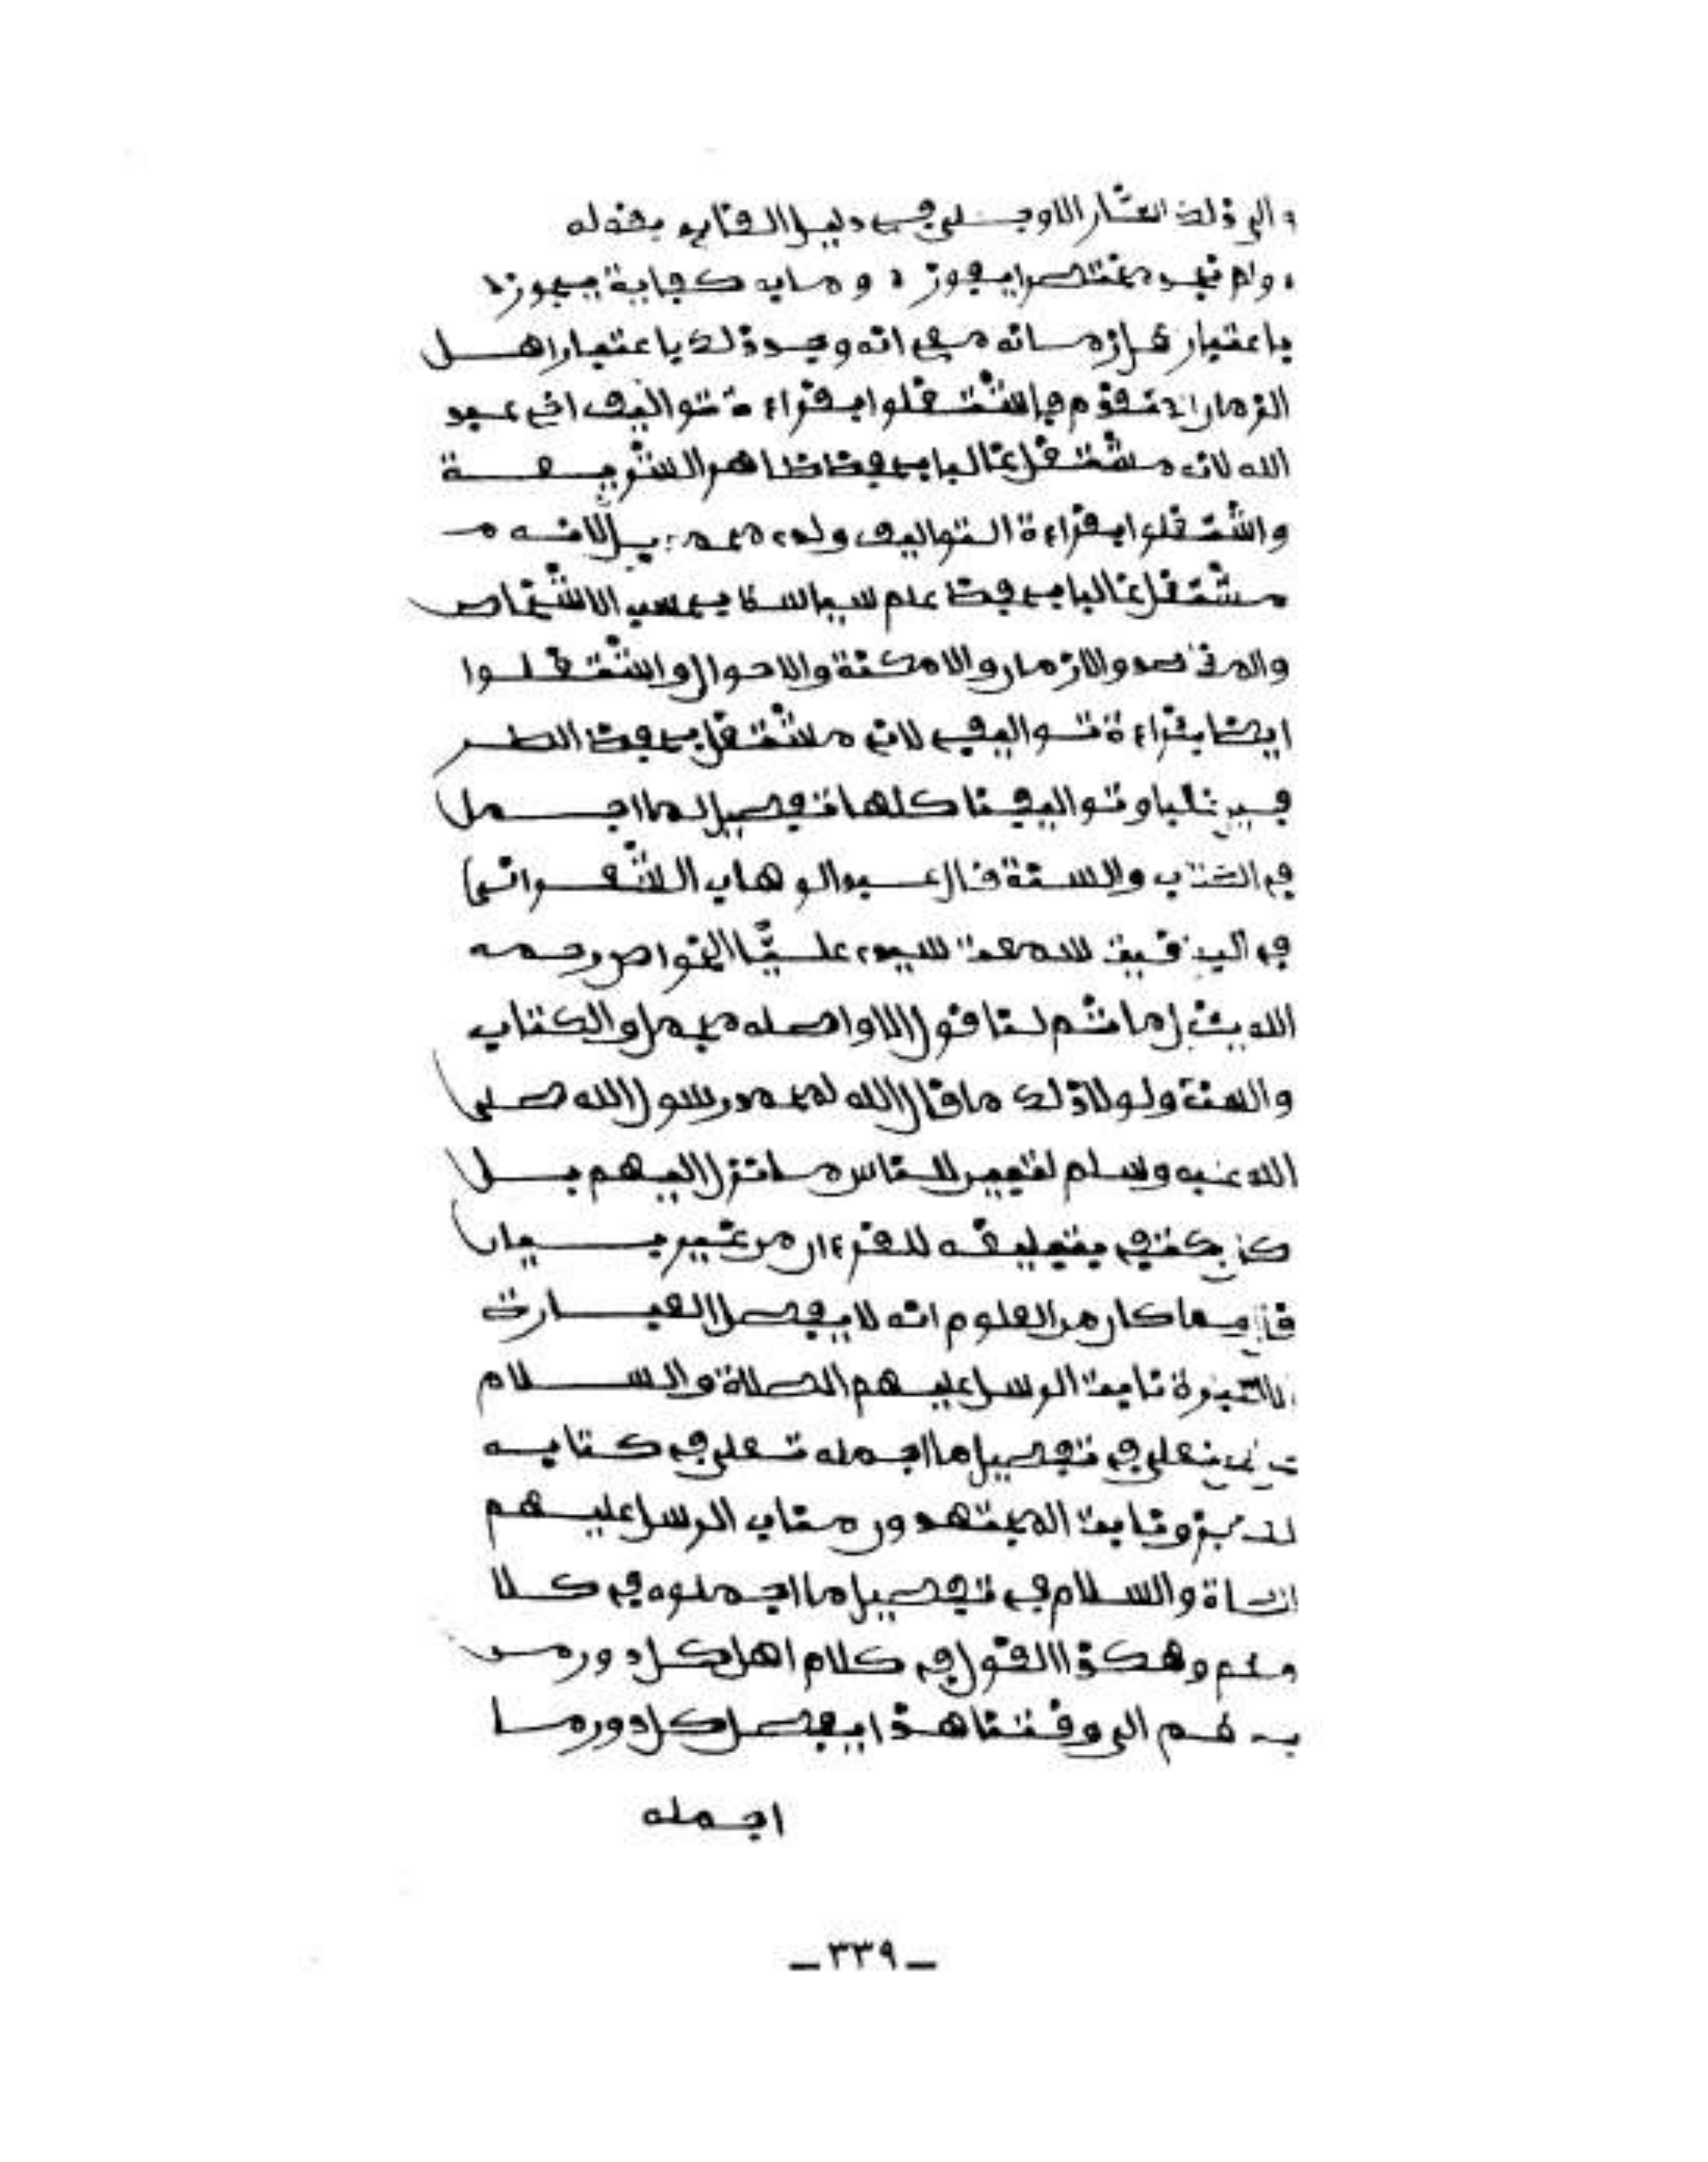 والى ذلك اشار الاوجلي في دليل القائد بقوله
ولم نجد مختصرا يفوز ، وما به كفاية يجوز ،
باعتبار اهل زمانه مع انه وجد ذلك باعتبار اهل
الزمان اذ تقدم فاشتغلوا بقراءة تواليف اخي عبد
الله لانه مشتغل غالبا بحفظ ظاهر الشريعة
واشتغلوا بقراءة تواليف ولدي محمد بل لانه م
مشتغل غالبا بحفظ علم سياسة بحسب الاشخاص
والمقاصد والازمان والامكنة والاحوال واشتغلوا
ايضا بقراءة تواليفي لاني مشتغل بحفظ الطر
فين غالبا وتواليفنا كلها تفصيل لما اجمل
في الكتاب والسنة قال عبد الوهاب الشعراني
في اليواقيت سمعت سيدي عليّا الخواص رحمه
الله يقول ما ثم لنا قول الا واصله مجمل والكتاب
والسنة ولولا ذلك ما قال الله لمحمد رسول الله صلى
الله عليه وسلم لتبين للناس ما نزل اليهم بل
كان يكتفي بتبليغه للقرءان من غير بيان
فانه لما كان من المعلوم انه لا يفصل العبارة
الا العبارة نابت الرسل عليهم الصلاة والسلام
تعالى في تفصيل ما اجمله تعلى في كتابه
العزيز ونابت المجتهدون مناب الرسل عليهم
الصلاة والسلام في تفصيل ما اجملوه في كلا
مهم وهكذا القول في كلام اهل كل دور من
بعدهم الى وقتنا هذا يفصل كل دور ما
اجمله
ـ ٣٣٩ ـ